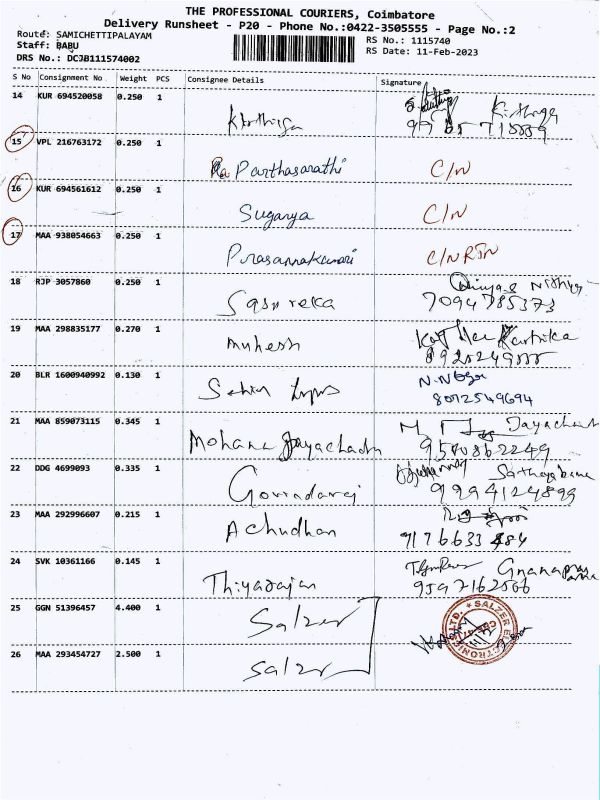 THE PROFESSIONAL COURIERS, Coimbatore
Delivery Runsheet - P20 - Phone No.:0422-3505555 - Page No.:2
Route: SAMICHETTIPALAYAM
Staff: BABU
DRS No.: DCJB111574002
RS No.: 1115740
RS Date: 11-Feb-2023
S No Consignment No Weight PCS Consignee Details Signature
14 KUR 694520058 0.250 1 Kirthiga
15 VPL 216763172 0.250 1 Parthasarathi C/N
16 KUR 694561612 0.250 1 Suganya C/N
17 MAA 938054663 0.250 1 Prasannakumari C/N RTN
18 RJP 3057860 0.250 1 Sasireka
7094785373
19 MAA 298835177 0.270 1 Mukesh Karthika
20 BLR 1600940992 0.130 1
8072549694
21 MAA 859073115 0.345 1 Mohana Jayachadn Jayachand
22 DDG 4699093 0.335 1 Govindaraj
9994124899
23 MAA 292996607 0.215 1 Achudhan
9176633 484
24 SVK 10361166 0.145 1 Thiyagarajan
9597162566
25 GGN 51396457 4.400 1 Salzer
26 MAA 293454727 2.500 1 Salzer